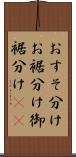 おすそ分け
お裾分け御
裾分け